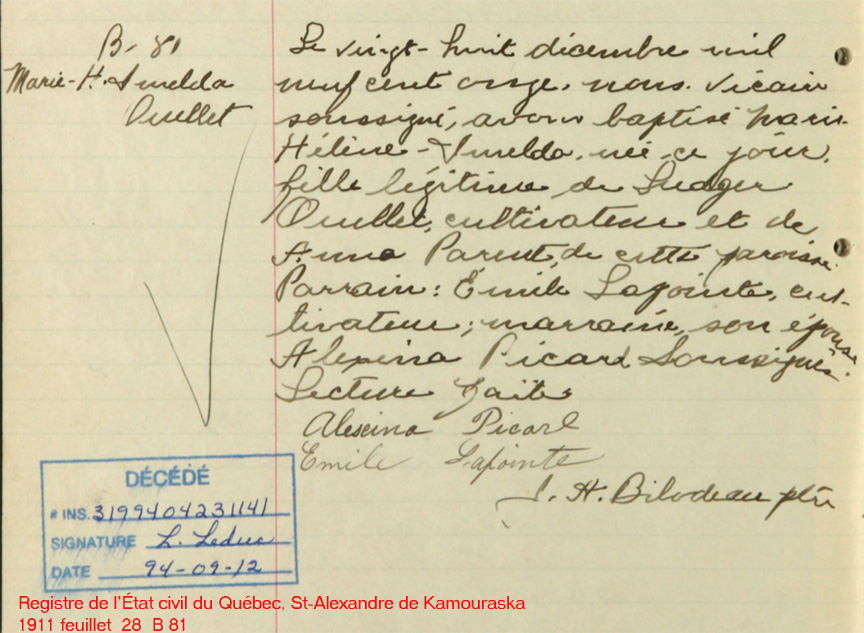 B-81
Marie-H. Imelda
Ouellet
Le vingt-huit décembre mil
neuf cent onze, nous vicaire
soussigné, avons baptisé Marie-
Hélène-Imelda, née ce jour,
fille légitime de Ludger
Ouellet, cultivateur et de
Anna Parent, de cette paroisse.
Parrain: Émile Lapointe, cul-
tivateur; marraine, son épouse
Alexina Picard Soussignés.
Lecture faite.
Alexina Picard
Emile Lapointe
J. H. Bilodeau ptre
DÉCÉDÉ
# INS. 3199404231141
SIGNATURE L. Leduc
DATE 94-09-12
Registre de l'État civil du Québec, St-Alexandre de Kamouraska
1911 feuillet 28 B 81